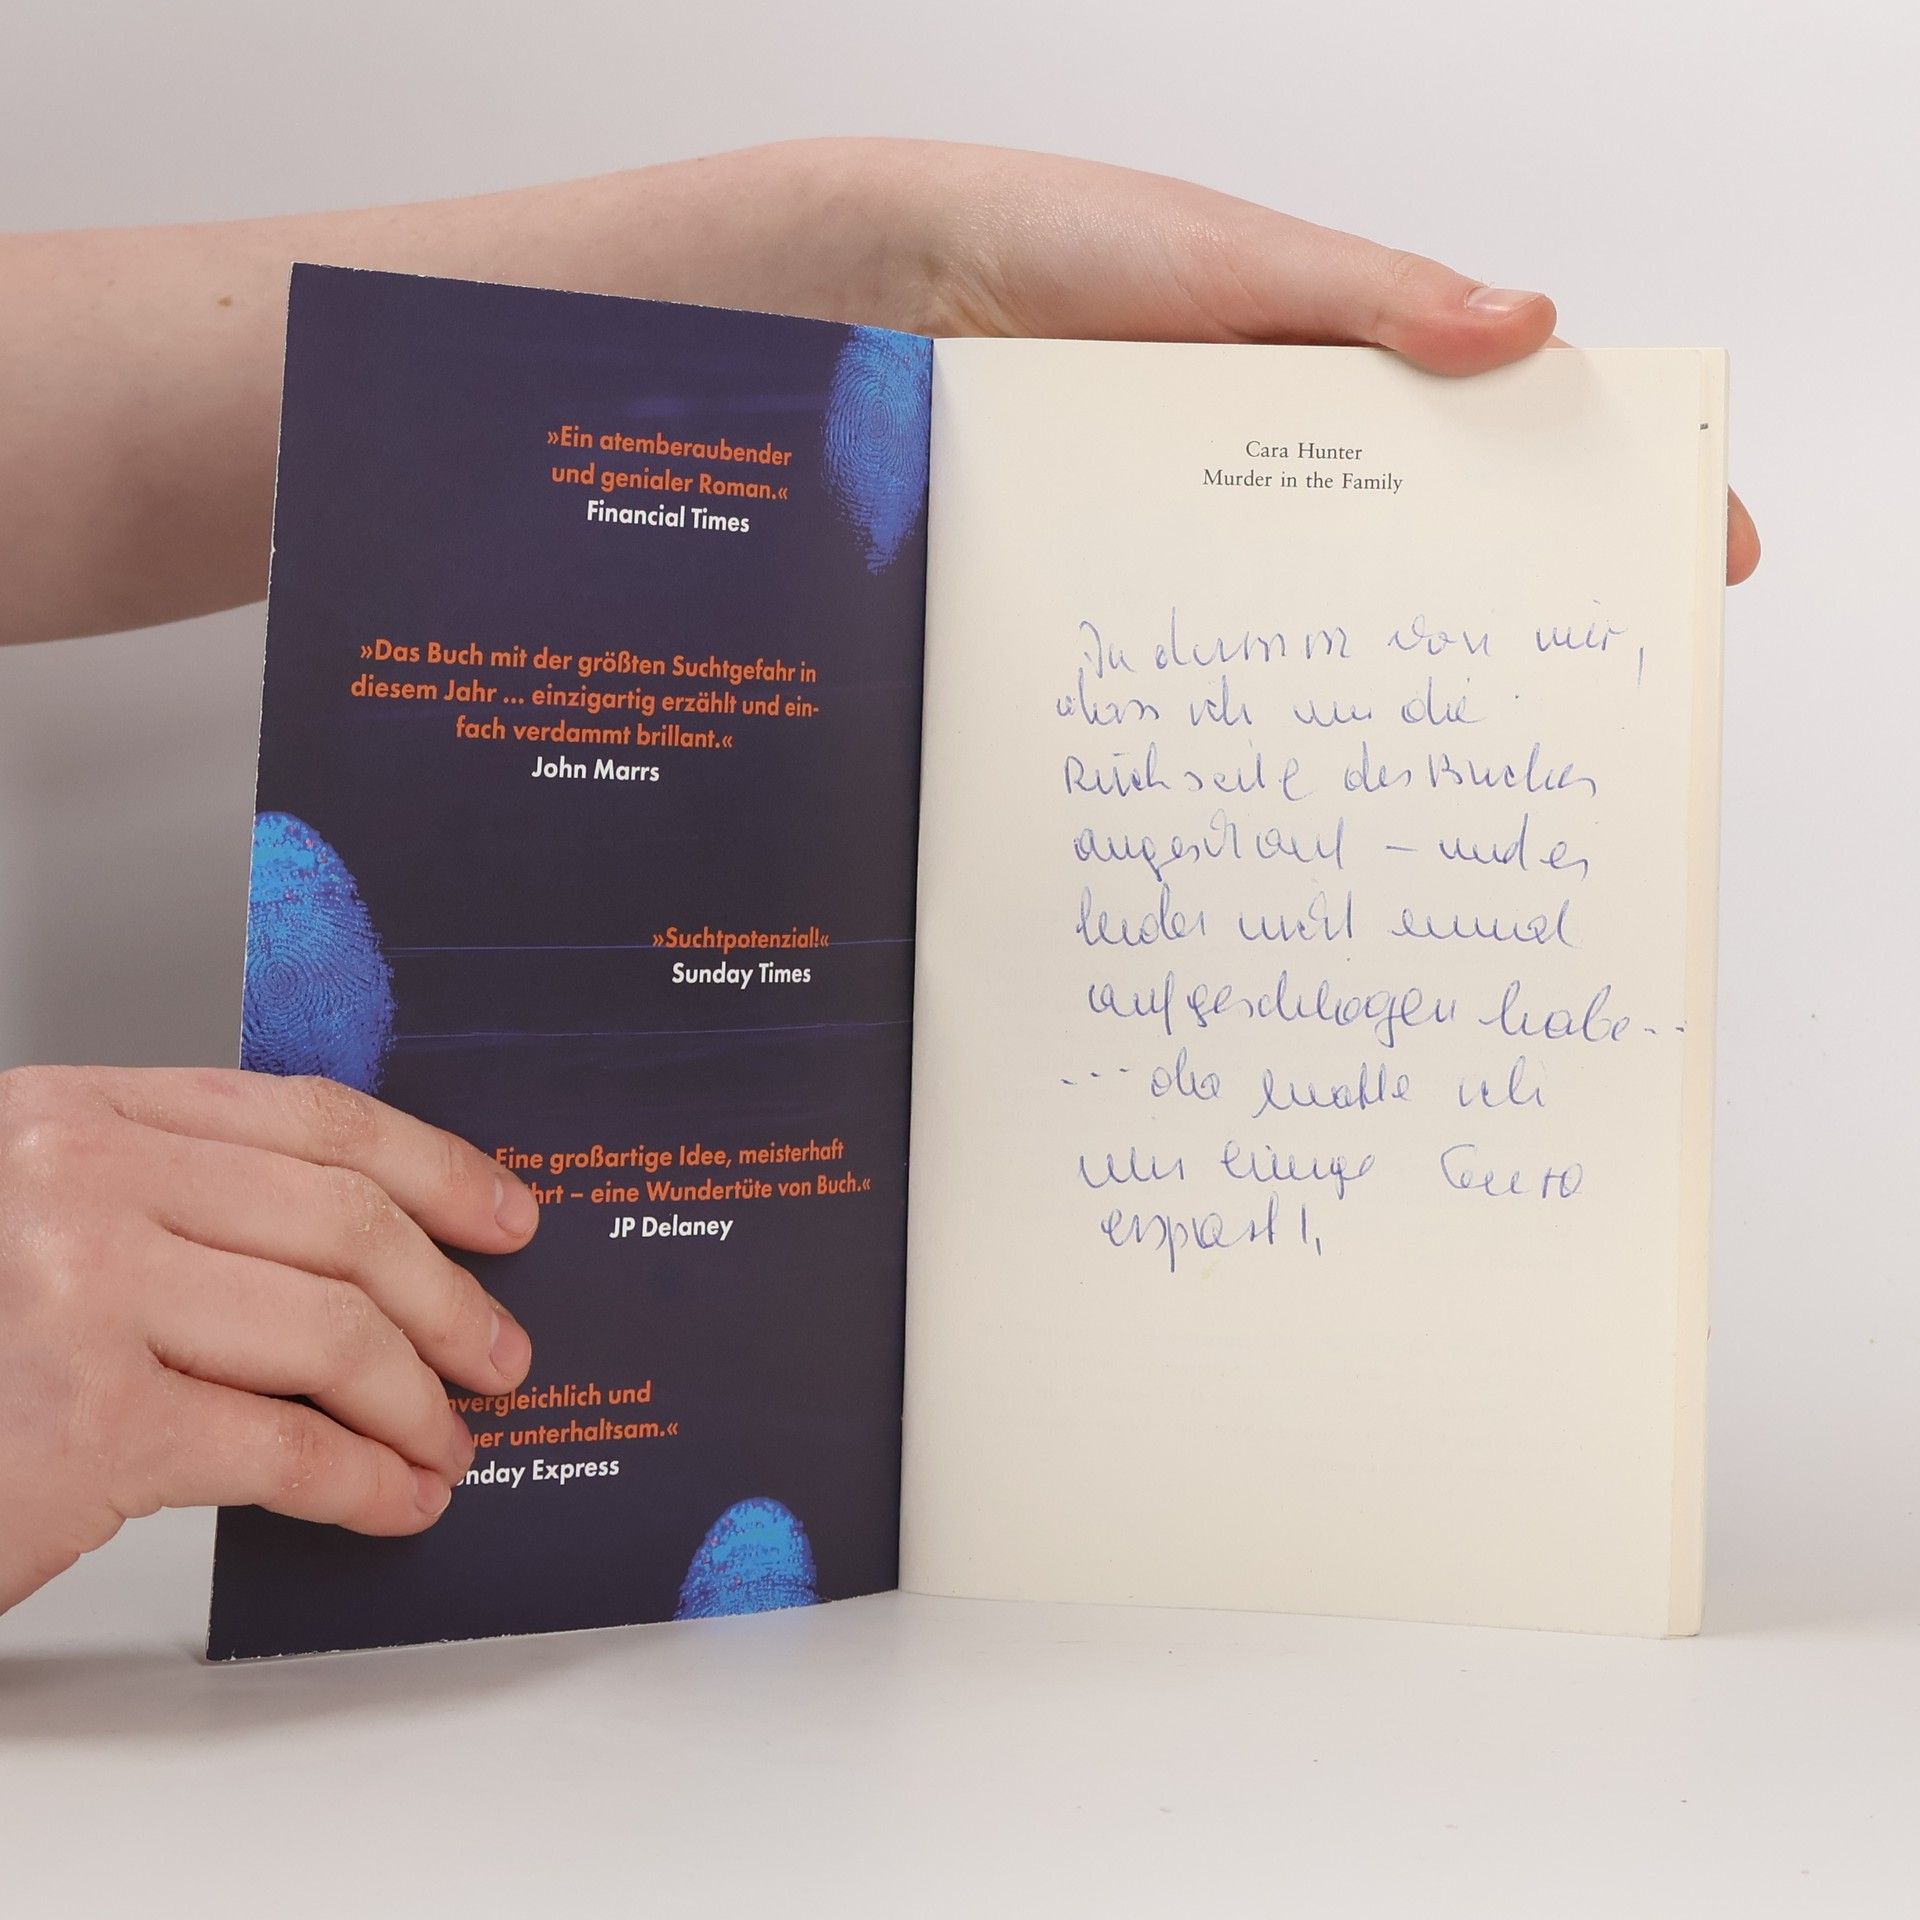 »Ein atemberaubender
und genialer Roman.«
Financial Times
»Das Buch mit der größten Suchtgefahr in
diesem Jahr ... einzigartig erzählt und ein-
fach verdammt brillant.«
John Marrs
»Suchtpotenzial!«
Sunday Times
Eine großartige Idee, meisterhaft
hrt – eine Wundertüte von Buch.«
JP Delaney
vergleichlich und
uer unterhaltsam.«
nday Express
Cara Hunter
Murder in the Family
Zu dumm von mir,
dass ich nur die
Rückseite des Buches
angeschaut – und es
leider nicht einmal
aufgeschlagen habe...
... da hätte ich
mir einige Euro
erspart!